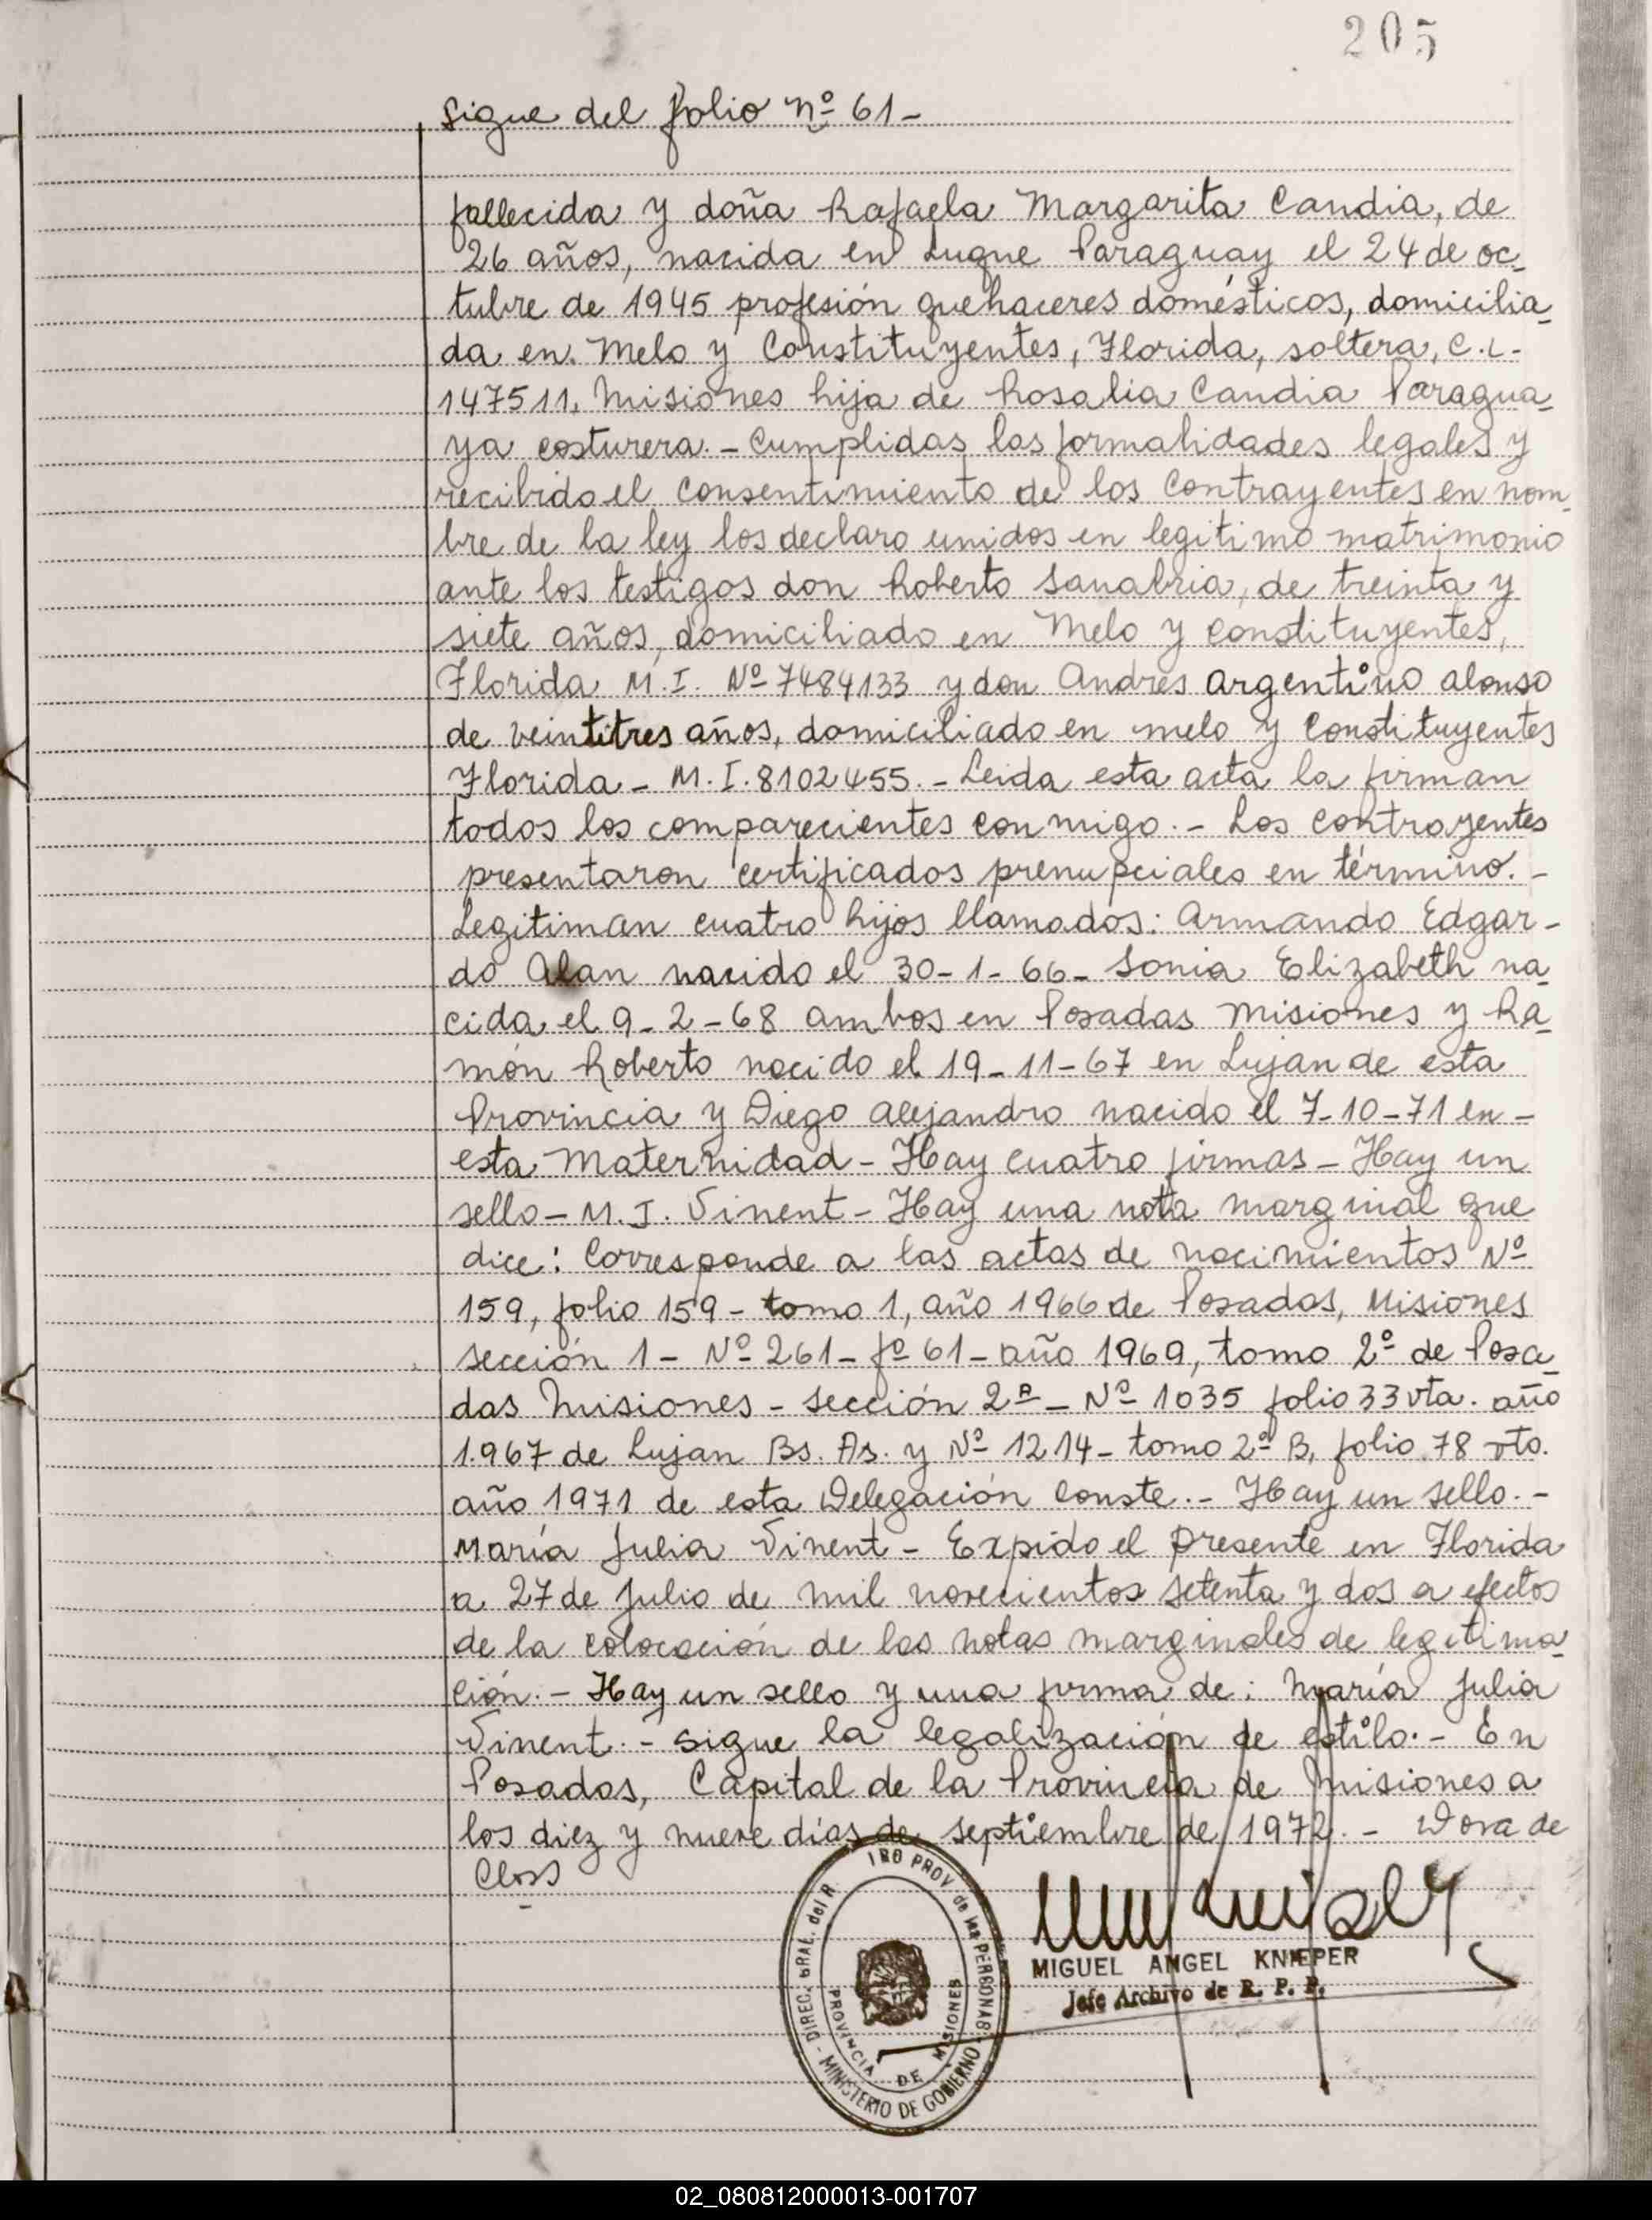 205
Sigue del folio Nº 61-
fallecida y doña Rafaela Margarita Candia, de
26 años, nacida en Luque Paraguay el 24 de oc-
tubre de 1945 profesión quehaceres domésticos, domicilia-
da en Melo y Constituyentes, Florida, soltera, C.I.
147511, Misiones hija de Rosalia Candia Paragua-
ya costurera.- Cumplidas las formalidades legales y
recibido el consentimiento de los contrayentes en nom-
bre de la ley los declaro unidos en legitimo matrimonio
ante los testigos don Roberto Sanabria, de treinta y
siete años, domiciliado en Melo y constituyentes,
Florida M.I. Nº 7484133 y don Andrés Argentino Alonso
de veintitres años, domiciliado en melo y Constituyentes
Florida - M.I. 8102455.- Leida esta acta la firman
todos los comparecientes conmigo.- Los contrayentes
presentaron certificados prenupciales en término.-
Legitiman cuatro hijos llamados: Armando Edgar-
do Alan nacido el 30-1-66- Sonia Elizabeth na-
cida el 9-2-68 ambos en Posadas Misiones y Ra-
món Roberto nacido el 19-11-67 en Lujan de esta
Provincia y Diego Alejandro nacido el 7-10-71 en-
esta Maternidad - Hay cuatro firmas - Hay un
sello - M.J. Vinent - Hay una nota marginal que
dice: Corresponde a las actas de nacimientos Nº
159, folio 159 - tomo 1, año 1966 de Posadas, Misiones
sección 1 - Nº 261 - fº 61 - año 1969, tomo 2º de Posa-
das Misiones - Sección 2ª - Nº 1035 folio 33 vta. año
1.967 de Lujan Bs. As. y Nº 1214 - tomo 2º B, folio 78 vto.
año 1971 de esta Delegación conste.- Hay un sello.-
María Julia Vinent - Expido el presente en Florida
a 27 de Julio de mil novecientos setenta y dos a efectos
de la colocación de las notas marginales de legitima-
ción.- Hay un sello y una firma de: María Julia
Vinent.- Sigue la legalización de estilo.- En
Posadas, Capital de la Provincia de Misiones a
los diez y nueve días de septiembre de 1972.- Dora de
Closs
DIREC. GRAL. del R
PROV. de las PERSONAS
MINISTERIO DE GOBIERNO
PROVINCIA DE MISIONES
MIGUEL ANGEL KNIEPER
Jefe Archivo de R. P. P.
02_080812000013-001707